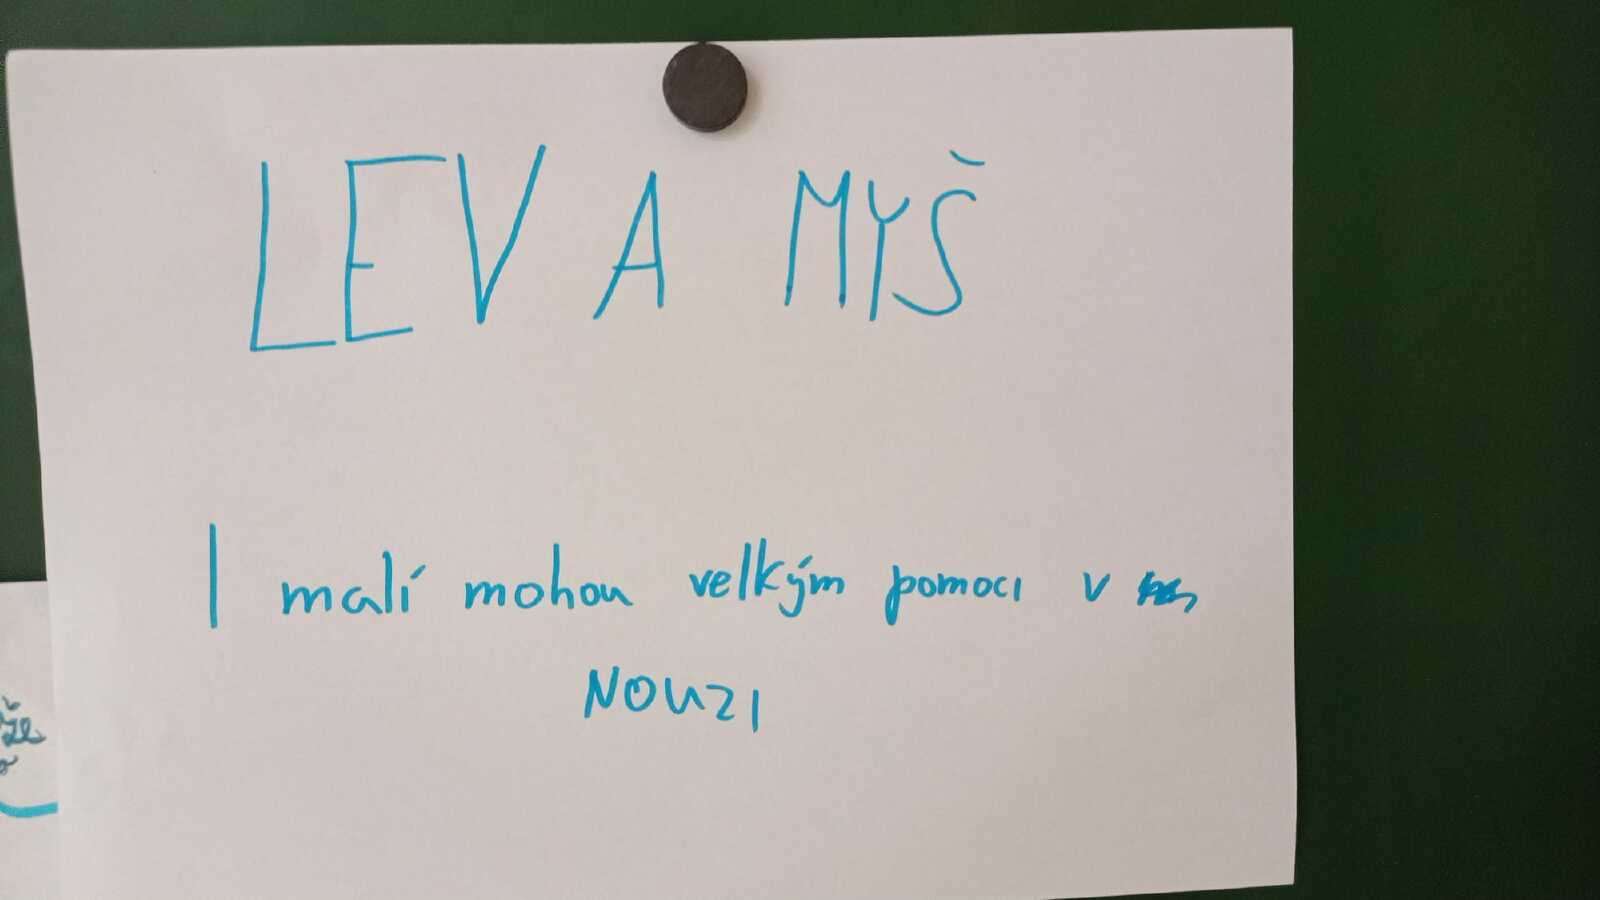 LEV A MYŠ
I malí mohou velkým pomoci v
NOUZI